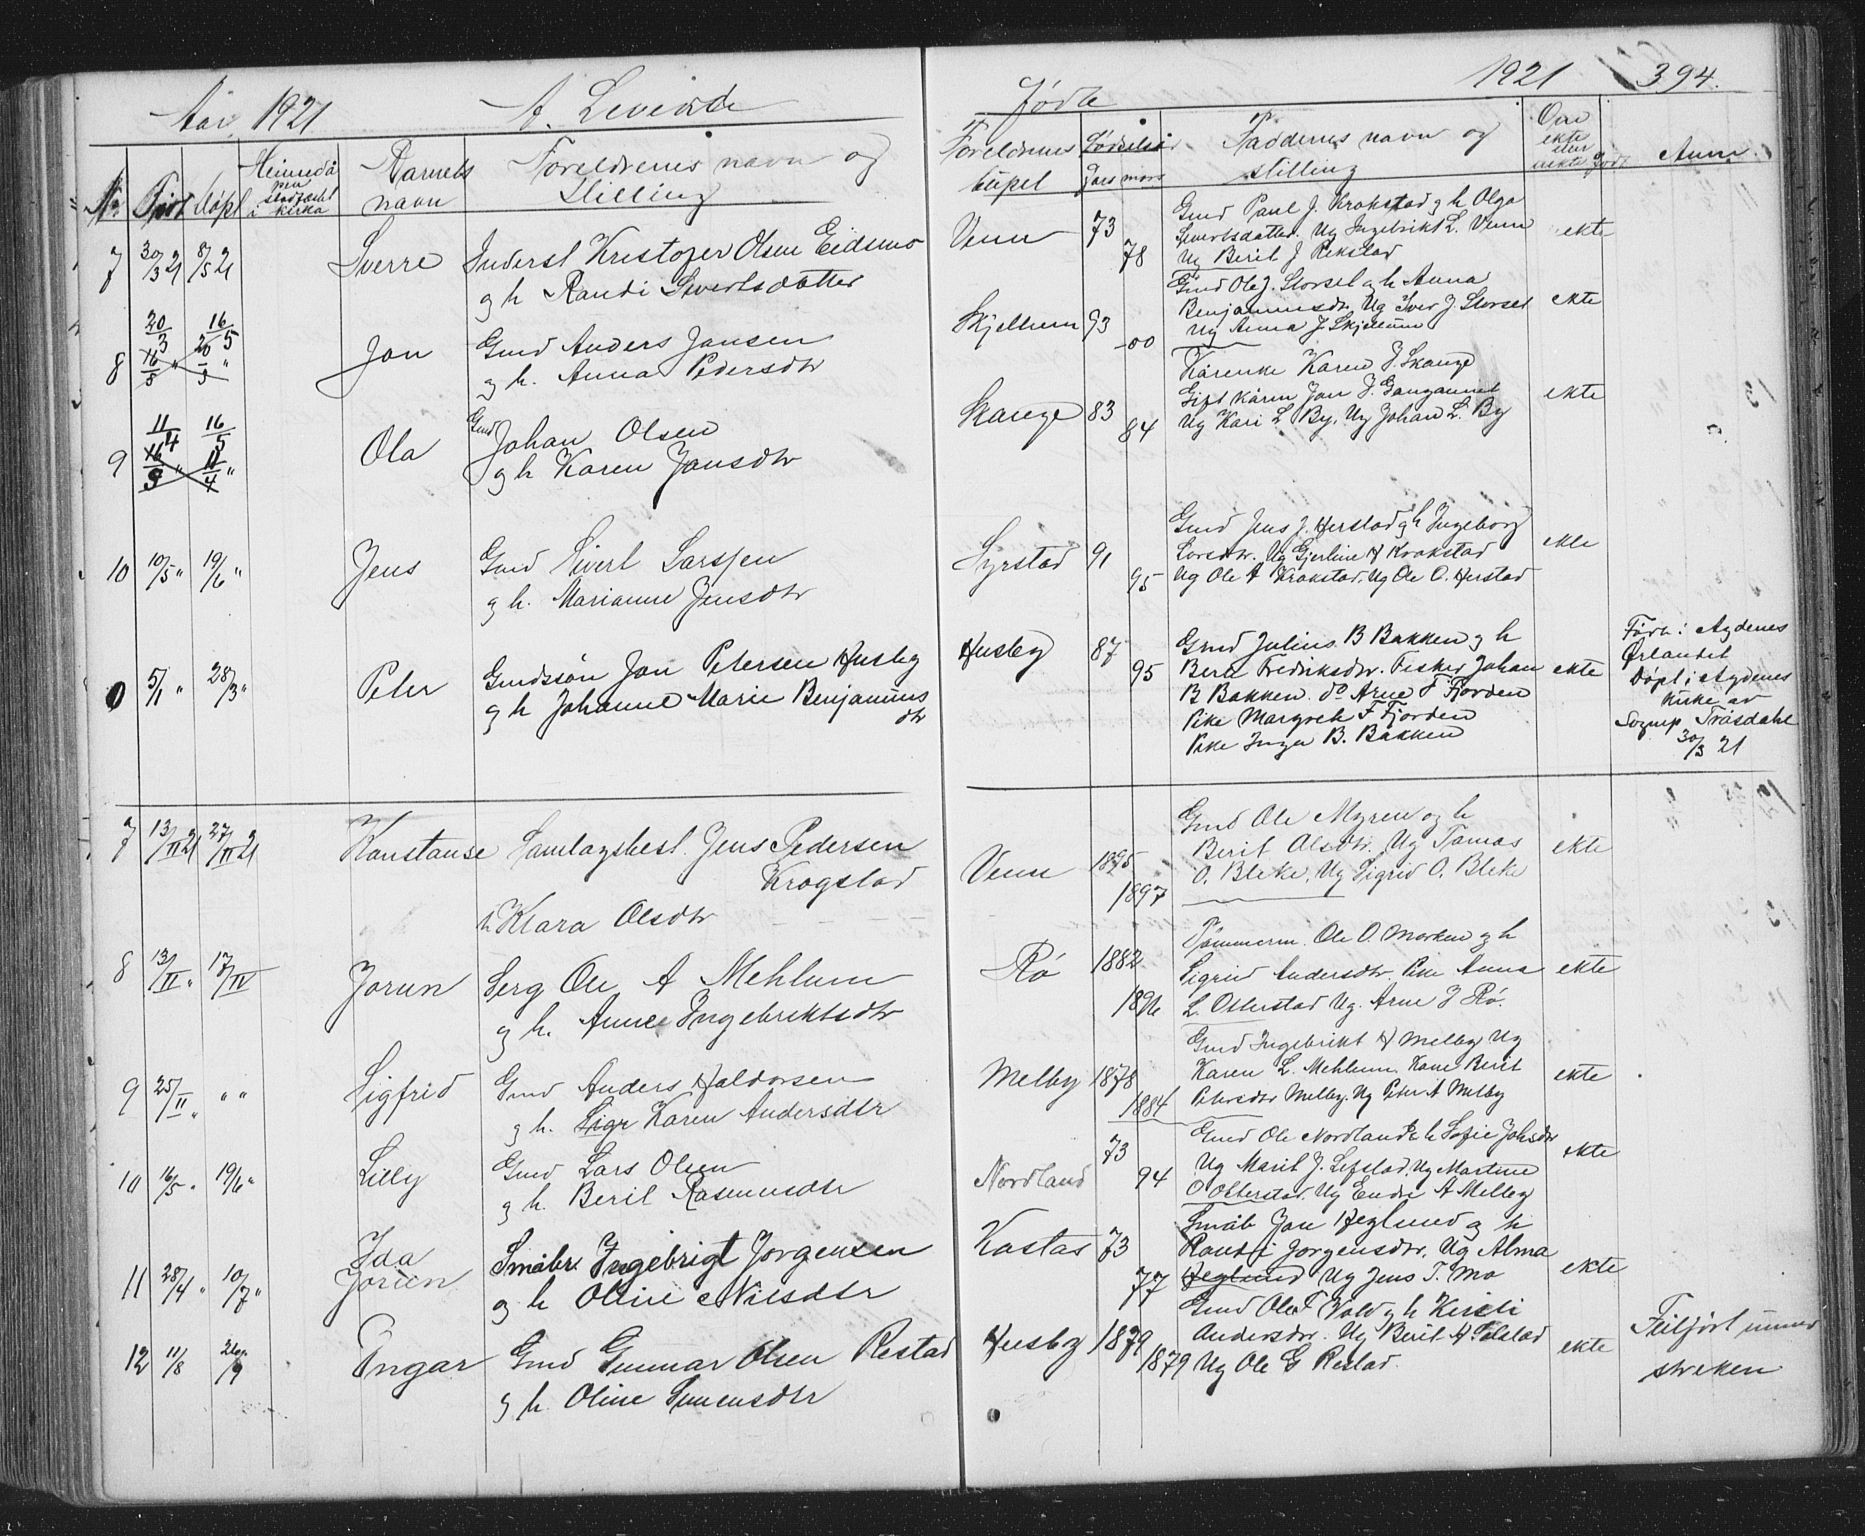 Aar 1921 A. Levende
Fødte 1921 394.
No Født Døpt Heimedåp med stadfæst i kirka Barnets navn Foreldrenes navn og stilling
Foreldrenes bupel Fødselsår Fars mors Faddernes navn og stilling Om ekte eller uekte født Anm.
7 30/3 21 8/5 21 Sverre Inderst Kristofer Olsen Eidsmo
og h Randi Sivertsdatter
Venn 73
78
Gmd Paul J. Krokstad og h Olga
Sivertsdatter. Ug Ingebrikt L. Venn
Ug Berit J Rekstad
ekte
8 20/3 16/5
16/5 " 20/3 "
Jon Gmd Anders Jansen
og h. Anna Pedersdtr
Skjellum 93
00
Gmd Ole J. Storset og h Anna
Benjaminsdr. Ug Iver J Storset
Ug Anna J Skjellum
ekte
9 11/4 16/5
16/5 " 11/4 "
Ola Gmd Johan Olsen
og h Karen Jansdtr
Skauge 83
84
Kårenke Karen J. Skauge
Gift kårm Jon J.
Ug Kari L By, Ug Johan L. By
ekte
10 10/5 " 19/6 " Jens Gmd Sivert Larssen
og h. Marianne Jensdtr
Syrstad 91
95
Gmd Jens J. Herstad og h Ingeborg
Larsdtr. Ug Gjertine A Krokstad
Ug Ole A Krokstad, Ug Ole O. Herstad
ekte
0 5/1 " 28/3 " Peter Gmdssøn Jon Petersen Husby
og h Johanne Marie Benjamins
dtr
Husby 87
95
Gmd Julius B Bakken og h
Berit Fredriksdtr. Fisker Johan
B Bakken. do Arne F Fjorden
Pike Margrete F Fjorden
Pike Inga B. Bakken
ekte
Født i Agdenes
Ørlandet
Døpt i Agdenes
kirke av
Sognep. Tråsdahl
30/3 21
7 13/II 21 27/II 21 Konstanse Samlagsbest. Jens Pedersen
Krogstad
h Klara Olsdtr
Venn 1895
1897
Gmd Ole Myren og h
Berit Olsdtr. Ug Tomas
O. Bleke, Ug Sigrid O. Bleke
ekte
8 13/II " 17/IV Jorun Serg Ole A Mehlum
og h. Anne Ingebriktsdtr
Rø 1882
1896
Tømmerm. Ole O. Morken og h
Sigrid Andersdtr. Pike Anna
L. Otterstad Ug. Arne J Rø.
ekte
9 25/II " " " Sigfrid Gmd Anders Haldorsen
og h. Sigr Karen Andersdtr
Melby 1878
1884
Gmd Ingebrikt H Melby Ug
Karen L. Mehlum. Kone Berit
Petersdtr Melby. Ug Peter A Melby
ekte
10 16/5 " 19/6 " Lilly Gmd Lars Olsen
og h. Berit Rasmusdtr
Nordland 73
94
Gmd Ole Nordland h Sofie Johsdtr
Ug Marit J. Sefstad, Ug Martine
O Otterstad. Ug Endre A Melby
ekte
11 28/4 " 10/7 " Ida
Jorun
Småbr. Ingebrigt Jørgensen
og h Oline Nilsdtr
Kastas 73
77
Småb Jon Heglund og h
Randi Jørgensdtr, Ug Alma
Heglund Ug Jens T. Mo
ekte
12 11/8 /9 Engar Gmd Gunnar Olsen Restad
og h. Oline Simensdtr
Husby 1879
1879
Gmd Ole F Vold og h Kirsti
Andersdtr. Ug Berit H Tolstad
Ug Ole G Restad.
ekte
Tilført under
streken